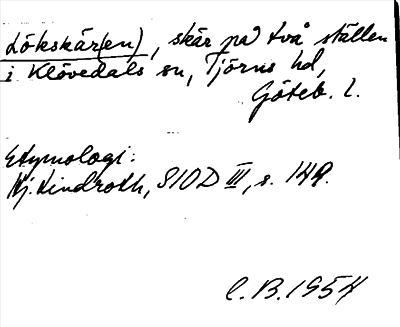 Lökskär(en), skär på två ställen
i Klövedals sn, Tjörns hd,
Göteb. l.
Etymologi:
Hj. Lindroth, SIOD III, s. 149.
C.B. 1954